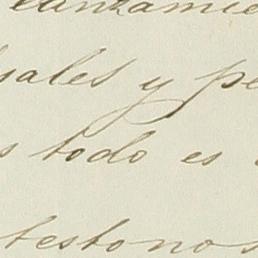 lanzamie
uales y pe
s todo es
testonos